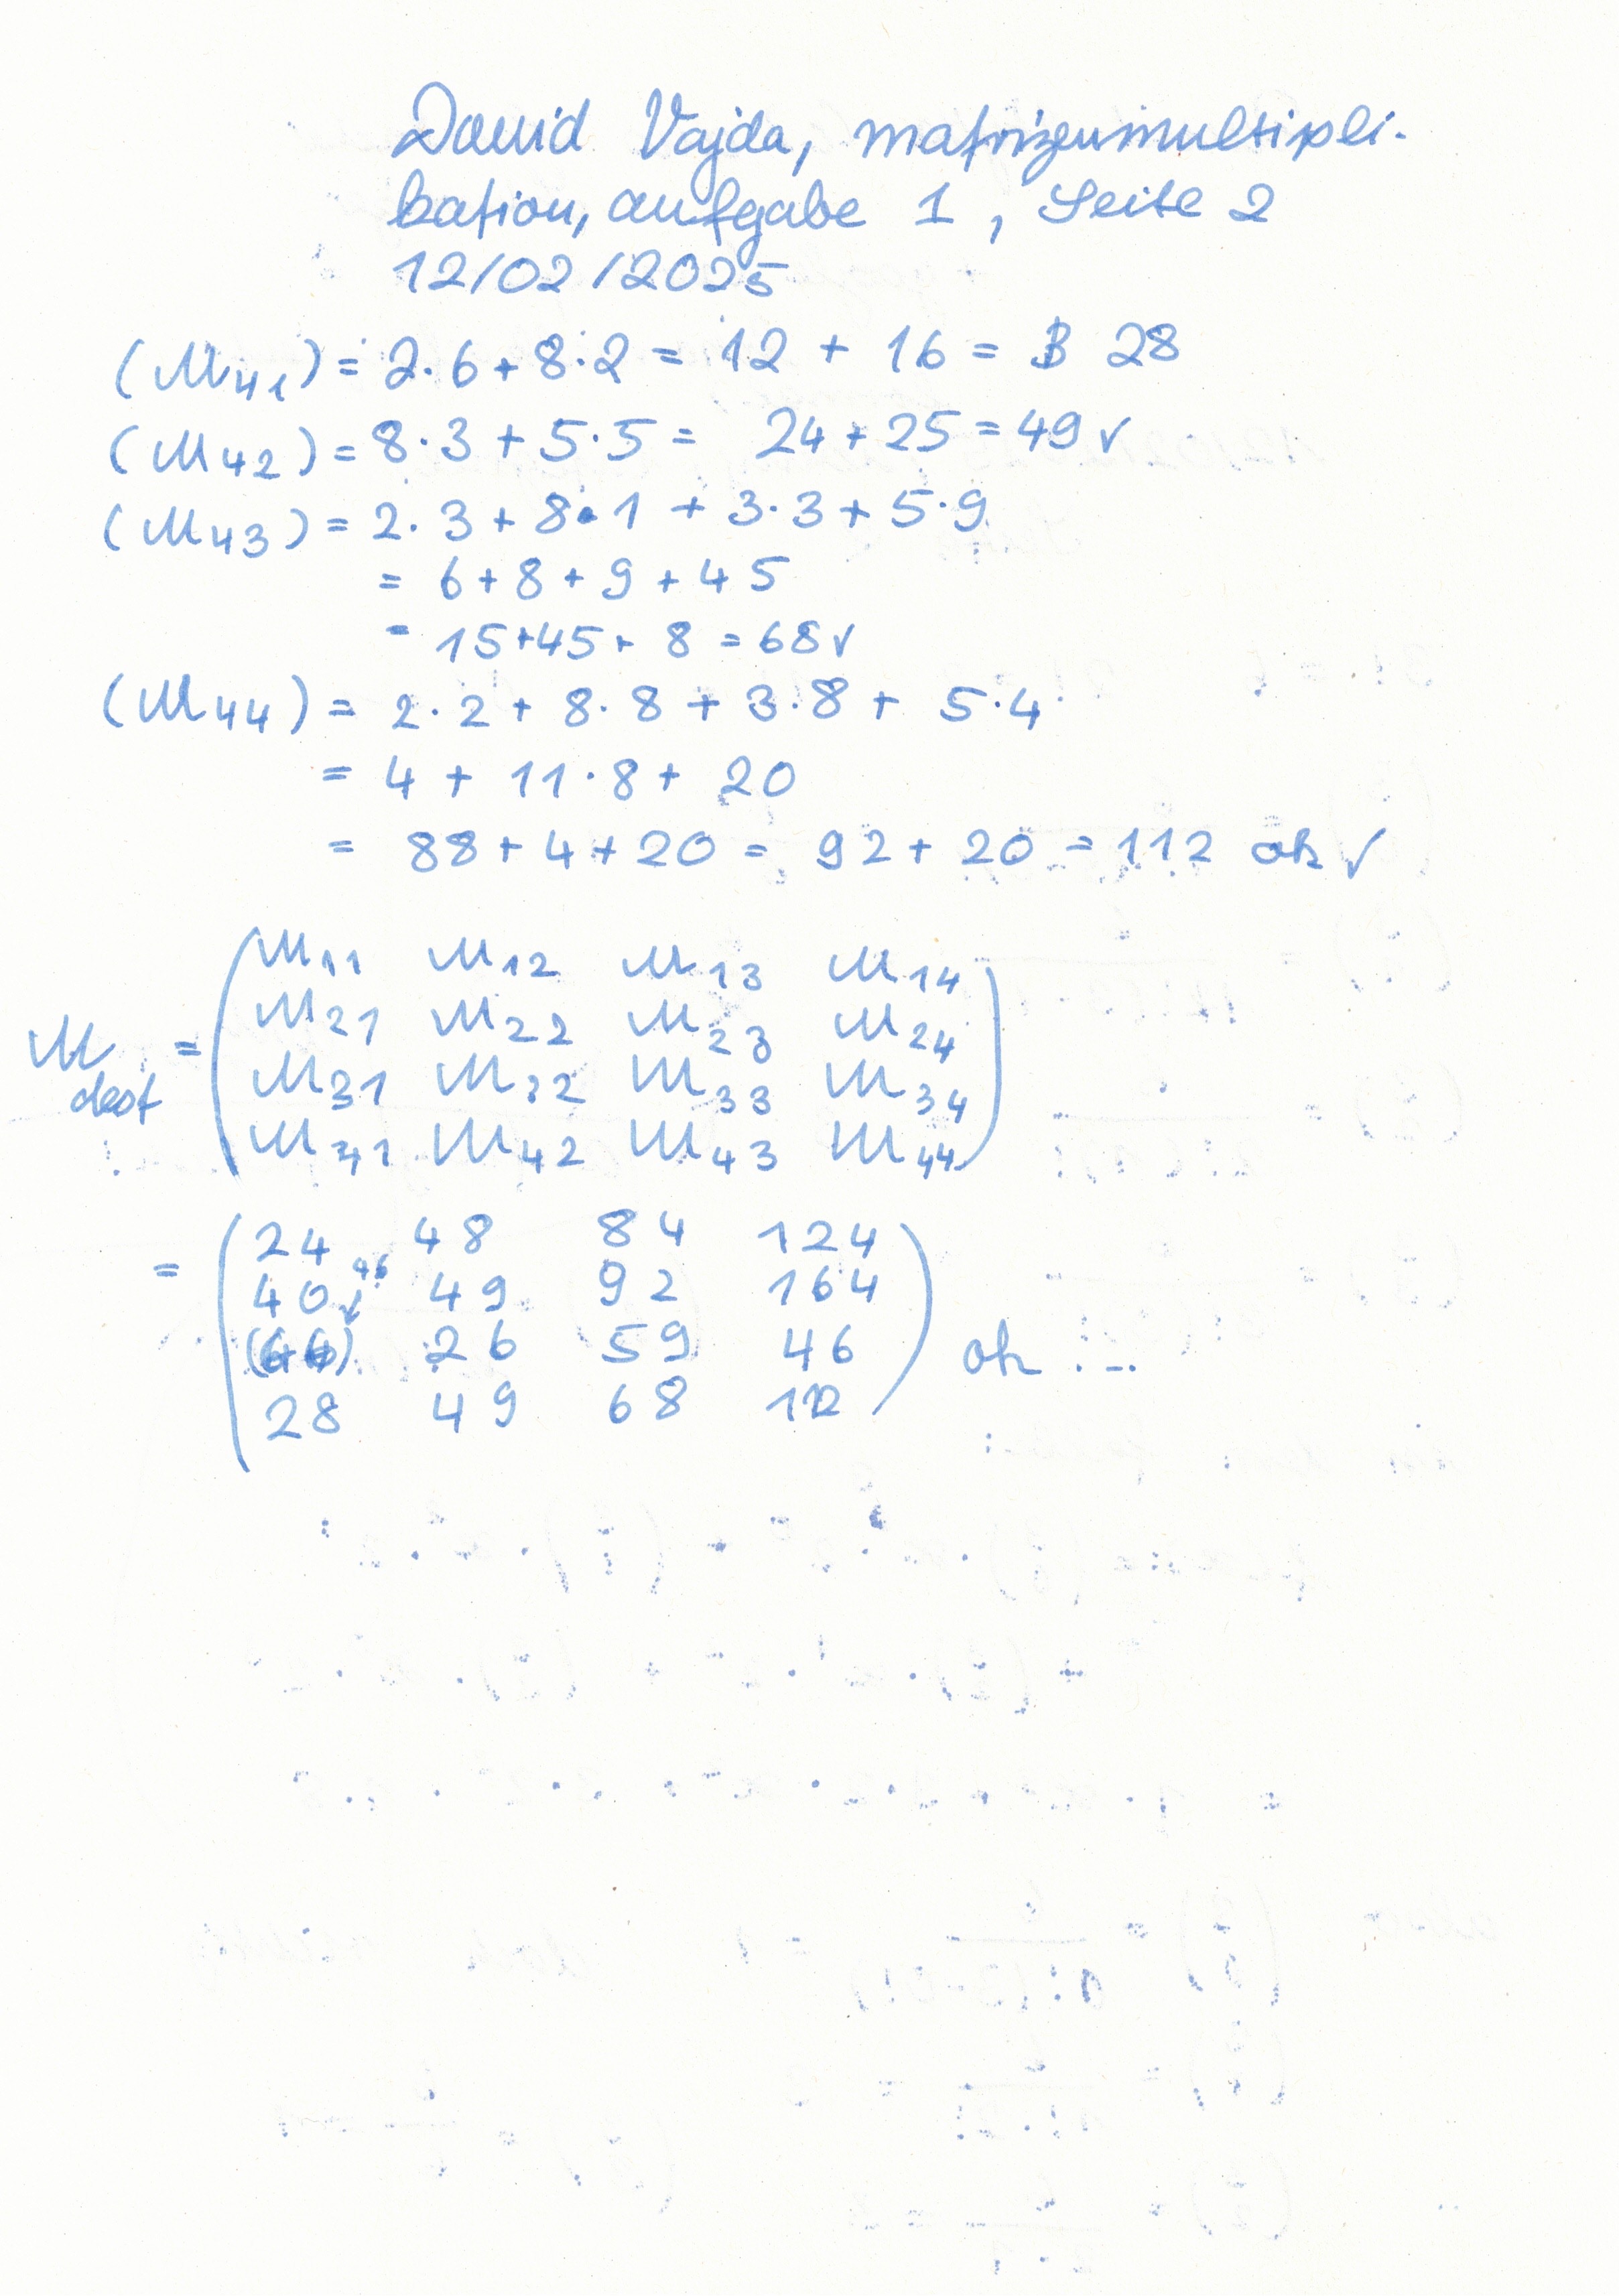 David Vajda, matrizenmultipli-
kation, aufgabe 1, Seite 2
12/02/2025
(M41) = 2·6+8·2 = 12 + 16 = 28
(M42) = 8·3+5·5 = 24+25 = 49 ✓
(M43) = 2·3+8·1 + 3·3+5·9
= 6+8+9+45
= 15+45+8 = 68 ✓
(M44) = 2·2+8·8+3·8+5·4
= 4 + 11·8+ 20
= 88+4+20 = 92+20 = 112 ok ✓
M11 M12 M13 M14
M21 M22 M23 M24
M dest =
M31 M32 M33 M34
M41 M42 M43 M44
24 48 84 124
= 40 49 92 164
46
26 59 46 ok :-.
28 49 68 112